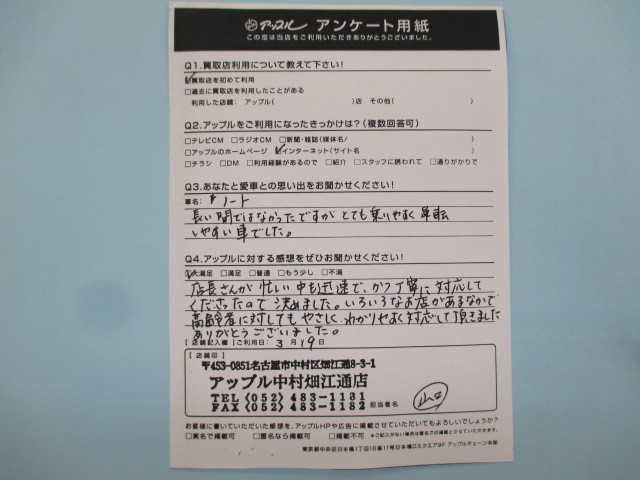 アップル アンケート用紙
この度は当店をご利用いただきありがとうございました。
Q1.買取店利用について教えて下さい!
☑買取店を初めて利用
□過去に買取店を利用したことがある
利用した店舗: アップル( )店 その他( )
Q2.アップルをご利用になったきっかけは?(複数回答可)
□テレビCM □ラジオCM □新聞・雑誌(媒体名/ )
□アップルのホームページ ☑インターネット(サイト名 )
□チラシ □DM □利用経験があるので □紹介 □スタッフに誘われて □通りがかりで
Q3.あなたと愛車との思い出をお聞かせください!
車名: ノート
長い間ではなかったですがとても乗りやすく運転
しやすい車でした。
Q4.アップルに対する感想をぜひお聞かせください!
☑大満足 □満足 □普通 □もう少し □不満
店長さんが忙しい中も迅速で、かつ丁寧に対応して
くださったので決めました。いろいろなお店があるなかで
高齢者に対してもやさしく、わかりやすく対応して頂きました
ありがとうございました。
[店舗記入欄] ご利用日: 3月19日
[店舗印]
〒453-0851名古屋市中村区畑江通8-3-1
アップル中村畑江通店
TEL〈052〉483-1181
FAX〈052〉483-1182 担当者名 山口
お客様に書いていただいた感想を、アップルHPや広告に掲載させていただいてもよろしいでしょうか?
□実名で掲載可 □匿名なら掲載可 □掲載不可 *ご記入が無い場合は匿名での掲載とさせていただきます。
東京都中央区日本橋1丁目16番11号日本橋Dスクエア9F アップルチェーン本部